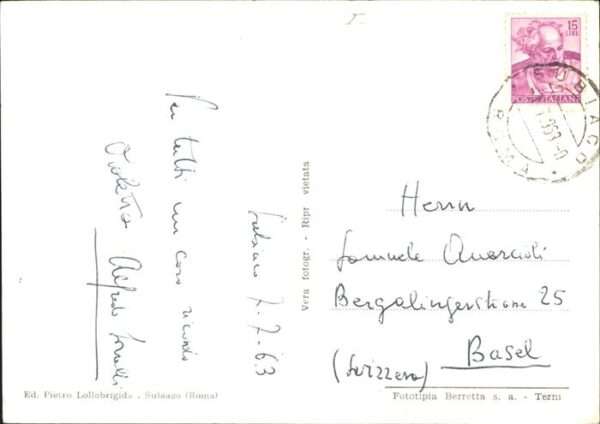 Per tutti un caro ricordo
Alfredo
Subiaco 7.7.63
Vera fotogr. - Ripr vietata
15
LIRE
POSTE ITALIANE
SUBIACO
ROMA
Herrn
Bergalingerstrasse 25
Basel
(Svizzera)
Ed. Pietro Lollobrigida . Subiaco (Roma)
Fototipia Berretta s. a. - Terni